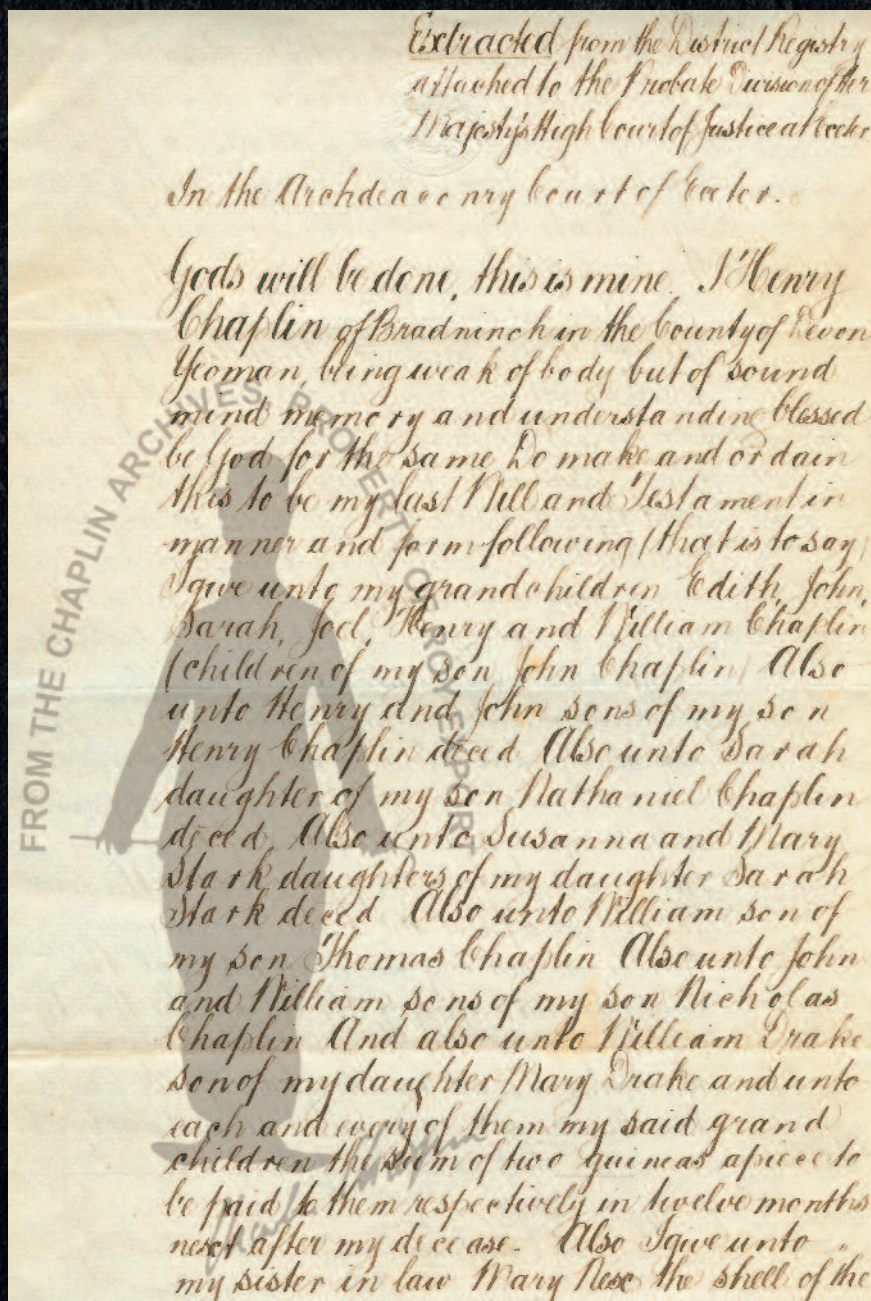 Extracted from the District Registry
attached to the Probate Division of Her
Majesty's High Court of Justice at Exeter
In the Archdeaconry Court of Exeter.
Gods will be done, this is mine. I Henry
Chaplin of Bradninch in the County of Devon
Yeoman, being weak of body but of sound
mind memory and understanding blessed
be God for the same Do make and ordain
this to be my last Will and Testament in
manner and form following (that is to say)
I give unto my grandchildren Edith, John,
Sarah, Joel, Henry and William Chaplin
(children of my son John Chaplin) Also
unto Henry and John sons of my son
Henry Chaplin deced Also unto Sarah
daughter of my son Nathaniel Chaplin
deced, Also unto Susanna and Mary
Stark daughters of my daughter Sarah
Stark deced Also unto William son of
my son Thomas Chaplin Also unto John
and William sons of my son Nicholas
Chaplin And also unto William Drake
son of my daughter Mary Drake and unto
each and every of them my said grand
children the sum of two guineas apiece to
be paid to them respectively in twelve months
next after my decease. Also I give unto
my sister in law Mary the shell of the
FROM THE CHAPLIN ARCHIVES. PROPERTY OF ROY EXPORT